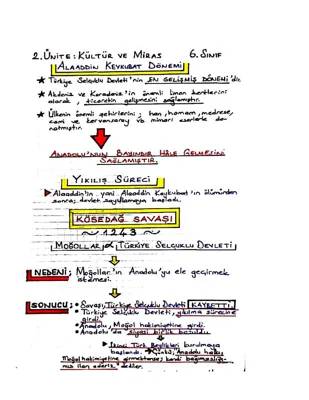 2. ÜNİTE: KÜLTÜR VE MİRAS 6. SINIF
ALAADDİN KEYKUBAT DÖNEMİ
★ Türkiye Selçuklu Devleti'nin EN GELİŞMİŞ DÖNEMİ'dir.
★ Akdeniz ve Karadeniz'in önemli liman kentlerini
alarak, ticaretin gelişmesini sağlamıştır.
★ Ülkenin önemli şehirlerini; han, hamam, medrese,
cami ve kervansaray vb mimari eserlerle do-
natmıştır.
ANADOLU'NUN BAYINDIR HÂLE GELMESİNİ
SAĞLAMIŞTIR.
YIKILIŞ SÜRECİ
Alaaddin'in yani Alaaddin Keykubat'ın ölümünden
sonra; devlet zayıflamaya başladı.
KÖSEDAĞ SAVAŞI
~ 1243 ~
MOĞOLLAR TÜRKİYE SELÇUKLU DEVLETİ
NEDENİ; Moğollar'ın Anadolu'yu ele geçirmek
istemesi.
SONUCU; • Savaşı, Türkiye Selçuklu Devleti KAYBETTİ.
• Türkiye Selçuklu Devleti, yıkılma sürecine
girdi.
• Anadolu, Moğol hakimiyetine girdi.
• Anadolu'da siyasi birlik bozuldu.
İkinci Türk Beylikleri kurulmaya
başlandı. Çünkü, Anadolu halkı,
Moğol hakimiyetine girmektense; kendi bağımsızlığı-
nı ilan ederiz dediler.